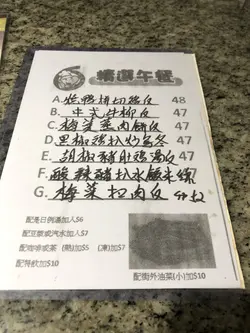 精選午餐
A. 燒鴨拼切雞反 48
B. 中式牛柳反 47
C. 梅菜蒸肉餅反 47
D. 黑椒雞扒炒烏冬 47
E. 胡椒豬肚鸡湯反 47
F. 酸辣豬扒水餃米線 47
G. 梅菜扣肉反
配是日例湯加入$6
配豆漿或汽水加入$7
配咖啡或茶 (熱)加$5 (凍)加$7
配特飲加$10
配街外油菜(小)加$10